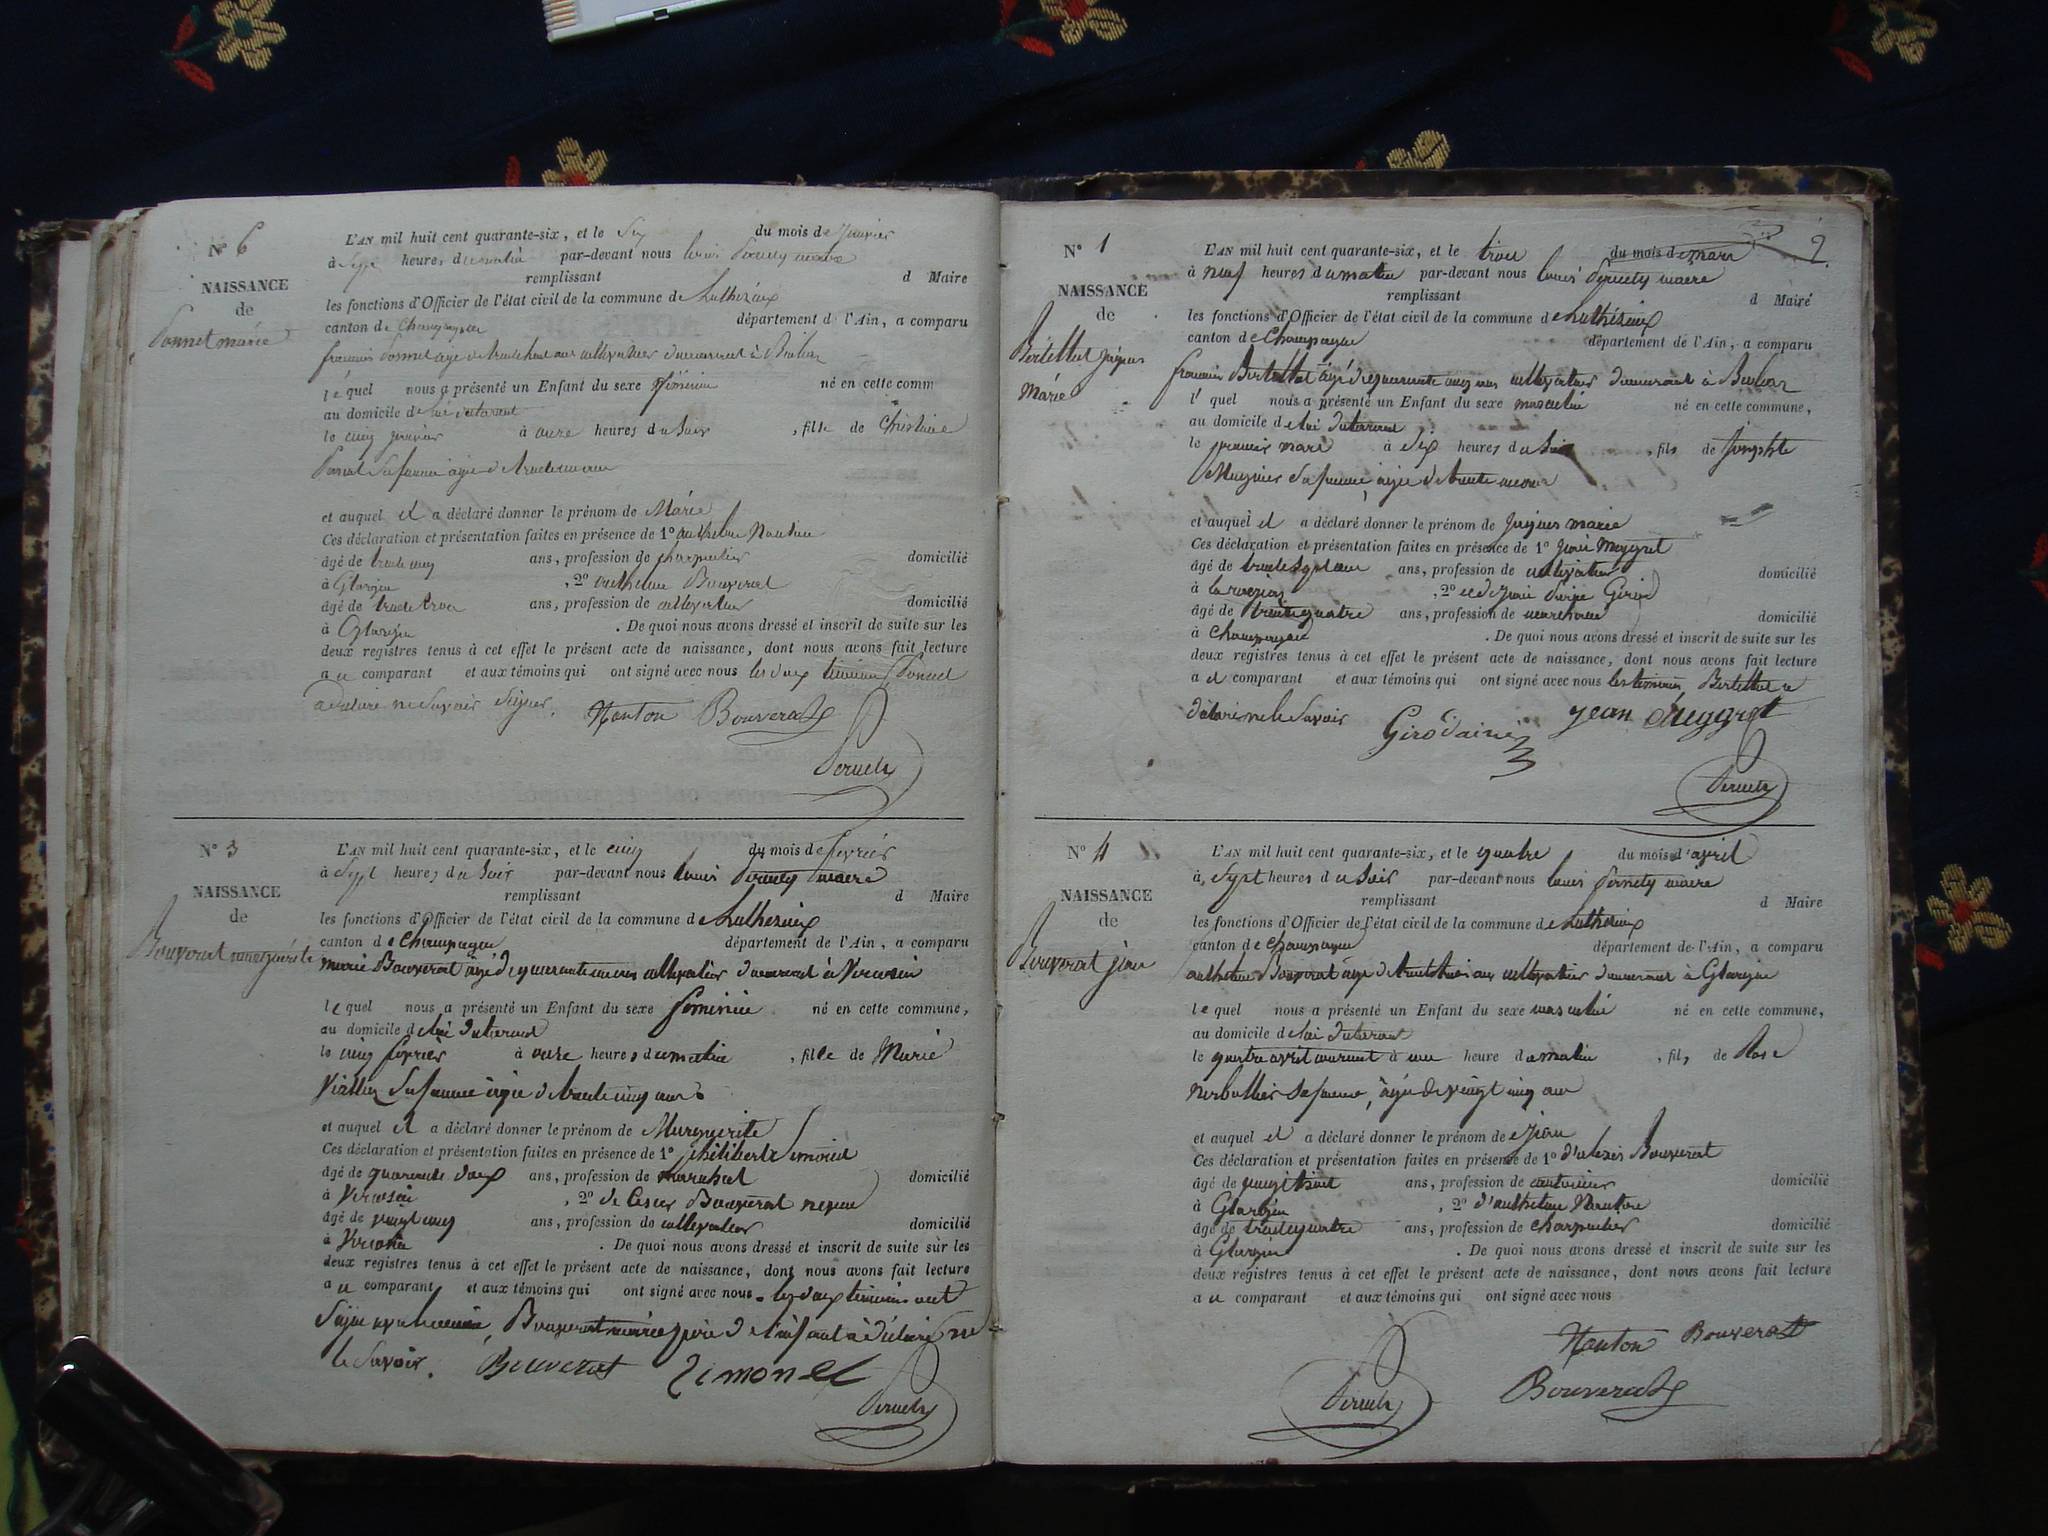 N° 6
NAISSANCE
de
Ponnet marie
L'AN mil huit cent quarante-six, et le Six du mois de Janvier
à Sept heures du matin par-devant nous louis Pernety maire
remplissant d Maire
les fonctions d'Officier de l'état civil de la commune de Luthézieu
canton de Champagne département de l'Ain, a comparu
françois Ponnet agé de trente huit ans cultivateur demeurant à
lequel nous a présenté un Enfant du sexe féminin né en cette comm
au domicile de lui declarant
le cinq janvier à onze heures du Soir, fille de Christine
Ponnet Sa femme agée de trente
et auquel il a déclaré donner le prénom de Marie
Ces déclaration et présentation faites en présence de 1° anthelme Nanton
âgé de trente cinq ans, profession de charpentier domicilié
à Glargin, 2° anthelme Bouverat
âgé de trente trois ans, profession de cultivateur domicilié
à Glargin. De quoi nous avons dressé et inscrit de suite sur les
deux registres tenus à cet effet le présent acte de naissance, dont nous avons fait lecture
au comparant et aux témoins qui ont signé avec nous les deux témoins, Ponnet
a déclaré ne Savoir Signer.
Nanton Bouverat
N° 3
NAISSANCE
de
Bouverat marguérite
L'AN mil huit cent quarante-six, et le cinq du mois de fevrier
à Sept heures du Soir par-devant nous louis Pernety maire
remplissant d Maire
les fonctions d'Officier de l'état civil de la commune de Luthezieu
canton de Champagne département de l'Ain, a comparu
marie Bouverat agé de quarante ans cultivateur demeurant à Vercosin
lequel nous a présenté un Enfant du sexe feminin né en cette commune,
au domicile de lui declarant
le cinq fevrier à onze heures du matin, fille de Marie
Sa femme agée de trente cinq ans
et auquel il a déclaré donner le prénom de Marguerite
Ces déclaration et présentation faites en présence de 1° philibert Simonet
âgé de quarante deux ans, profession de marechal domicilié
à Vercosin, 2° de Cesar Bouverat neveu
âgé de vingt cinq ans, profession de cultivateur domicilié
à Vercosin. De quoi nous avons dressé et inscrit de suite sur les
deux registres tenus à cet effet le présent acte de naissance, dont nous avons fait lecture
au comparant et aux témoins qui ont signé avec nous les deux témoins ont
Signé, Bouverat marie père de l'enfant a déclaré ne
le Savoir. Bouverat Simonet
N° 1
NAISSANCE
de
Bertettet Jaques
Marie
L'AN mil huit cent quarante-six, et le trois du mois de mars
à neuf heures du matin par-devant nous louis Pernety maire
remplissant d Maire
les fonctions d'Officier de l'état civil de la commune de Luthézieu
canton de Champagne département de l'Ain, a comparu
françois Bertettet agé de quarante cinq ans cultivateur demeurant à
lequel nous a présenté un Enfant du sexe masculin né en cette commune,
au domicile de lui declarant
le premier mars à Six heures du Soir, fils de Josephte
Mugnier Sa femme, agée de trente
et auquel il a déclaré donner le prénom de Jaques marie
Ces déclaration et présentation faites en présence de 1° Jean Meygret
âgé de trente Sept ans, profession de cultivateur domicilié
à, 2°
âgé de trente quatre ans, profession de marchand domicilié
à Champagne. De quoi nous avons dressé et inscrit de suite sur les
deux registres tenus à cet effet le présent acte de naissance, dont nous avons fait lecture
au comparant et aux témoins qui ont signé avec nous les témoins, Bertettet a
déclaré ne le Savoir
Girod ainé Jean Meygret
N° 4
NAISSANCE
de
Bouverat jean
L'AN mil huit cent quarante-six, et le quatre du mois d'avril
à Sept heures du Soir par-devant nous louis Pernety maire
remplissant d Maire
les fonctions d'Officier de l'état civil de la commune de Luthezieu
canton de Champagne département de l'Ain, a comparu
anthelme Bouverat agé de trente trois ans cultivateur demeurant à Glargin
lequel nous a présenté un Enfant du sexe masculin né en cette commune,
au domicile de lui declarant
le quatre avril courant à une heure du matin, fils de Rose
Sa femme, agée de vingt cinq ans
et auquel il a déclaré donner le prénom de Jean
Ces déclaration et présentation faites en présence de 1° d'alexis Bouverat
âgé de vingt huit ans, profession de domicilié
à Glargin, 2° d'anthelme Nanton
âgé de trente quatre ans, profession de charpentier domicilié
à Glargin. De quoi nous avons dressé et inscrit de suite sur les
deux registres tenus à cet effet le présent acte de naissance, dont nous avons fait lecture
au comparant et aux témoins qui ont signé avec nous
Nanton Bouverat
Bouverat